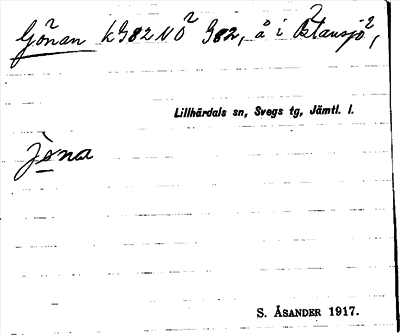 Gönan k 982 NO 982, å i Östansjö,
Lillhärdals sn, Svegs tg, Jämtl. l.
jöna
S. ÅSANDER 1917.